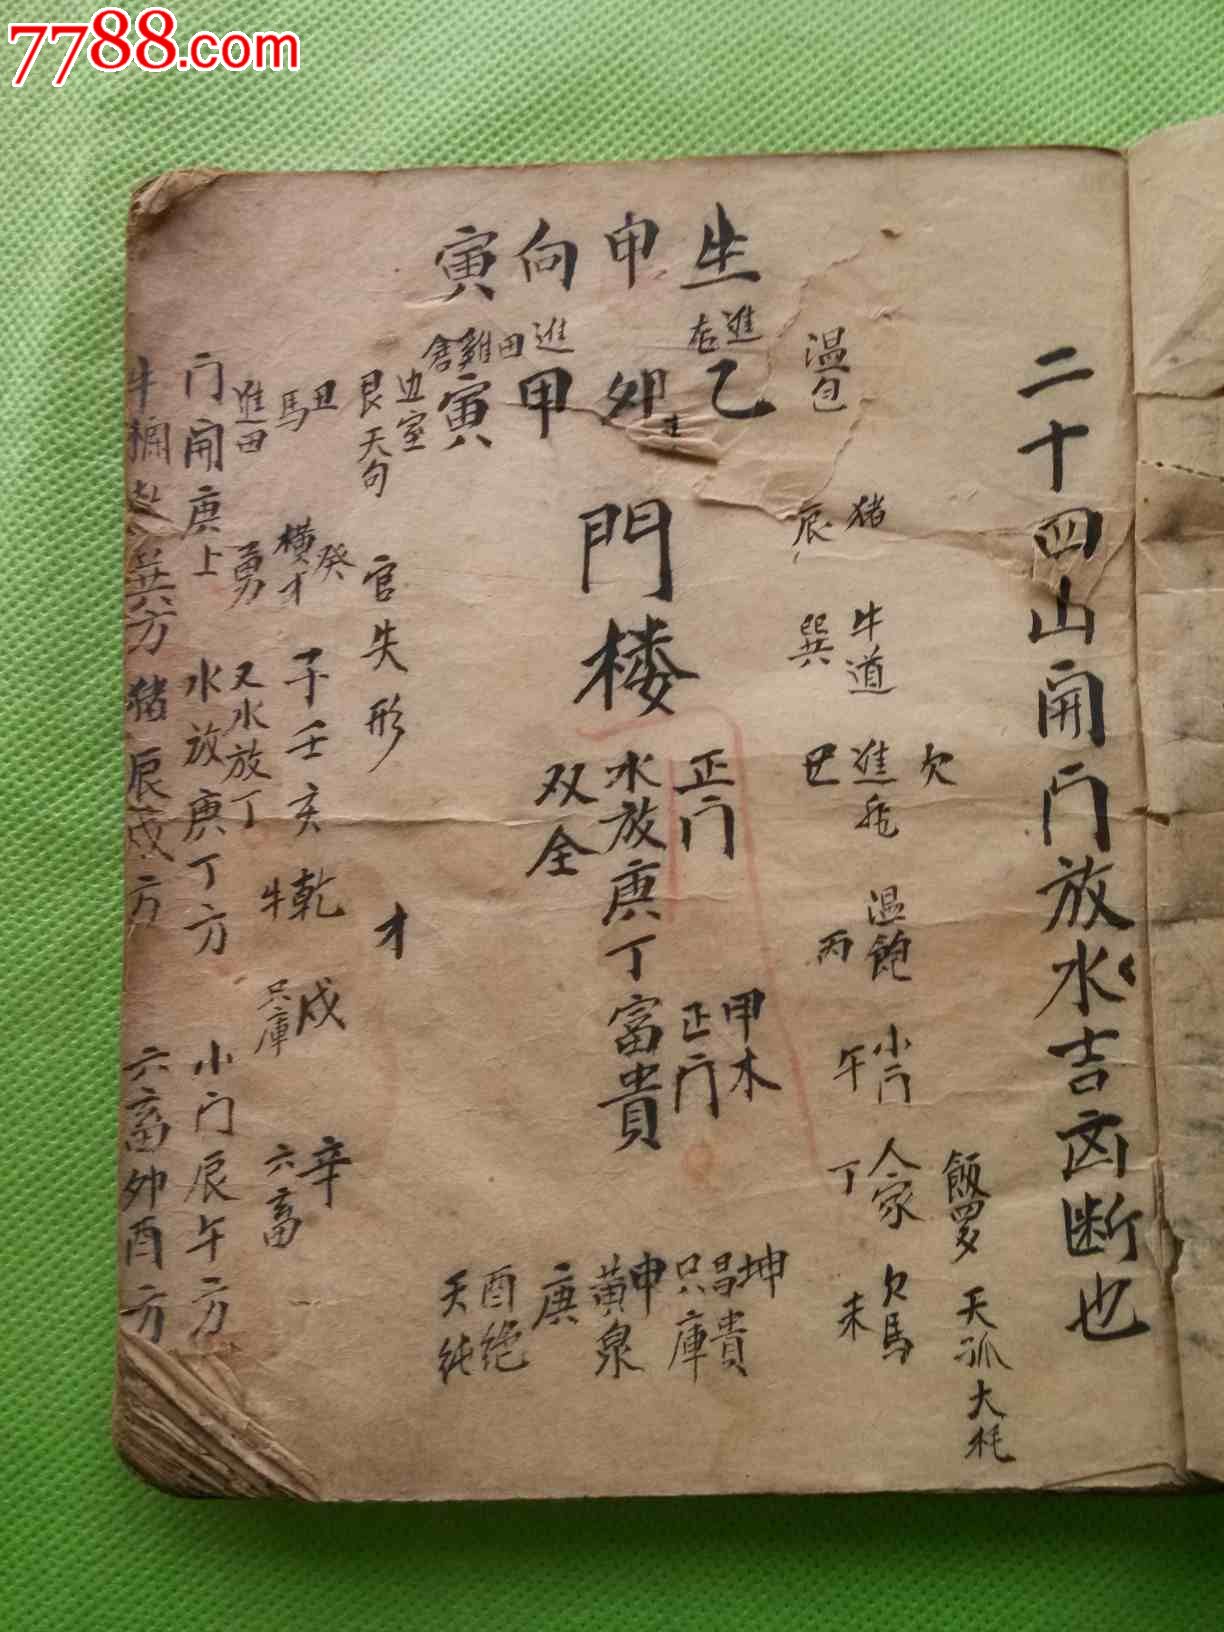 7788.com
二十四山開门放水吉凶断也
生申向寅
進
乙
卯
進田
甲
寅
温
猪
辰
牛道
巽
欠
進
巳
温飽
丙
小门
午
人家
丁
欠馬
未
飯
天狐大耗
門楼
正门
水放庚丁富貴
双全
甲木
正门
坤
昌貴
只庫
申
黄泉
庚
酉绝
天
艮
天句
丑
馬
官失形
才
癸
横才
子壬亥乾
牛
戍
只庫
辛
六畜
進田
勇
又水放丁
门開庚上
水放庚丁方
小门辰午方
牛
巽方
猪
辰戍方
六畜卯酉方